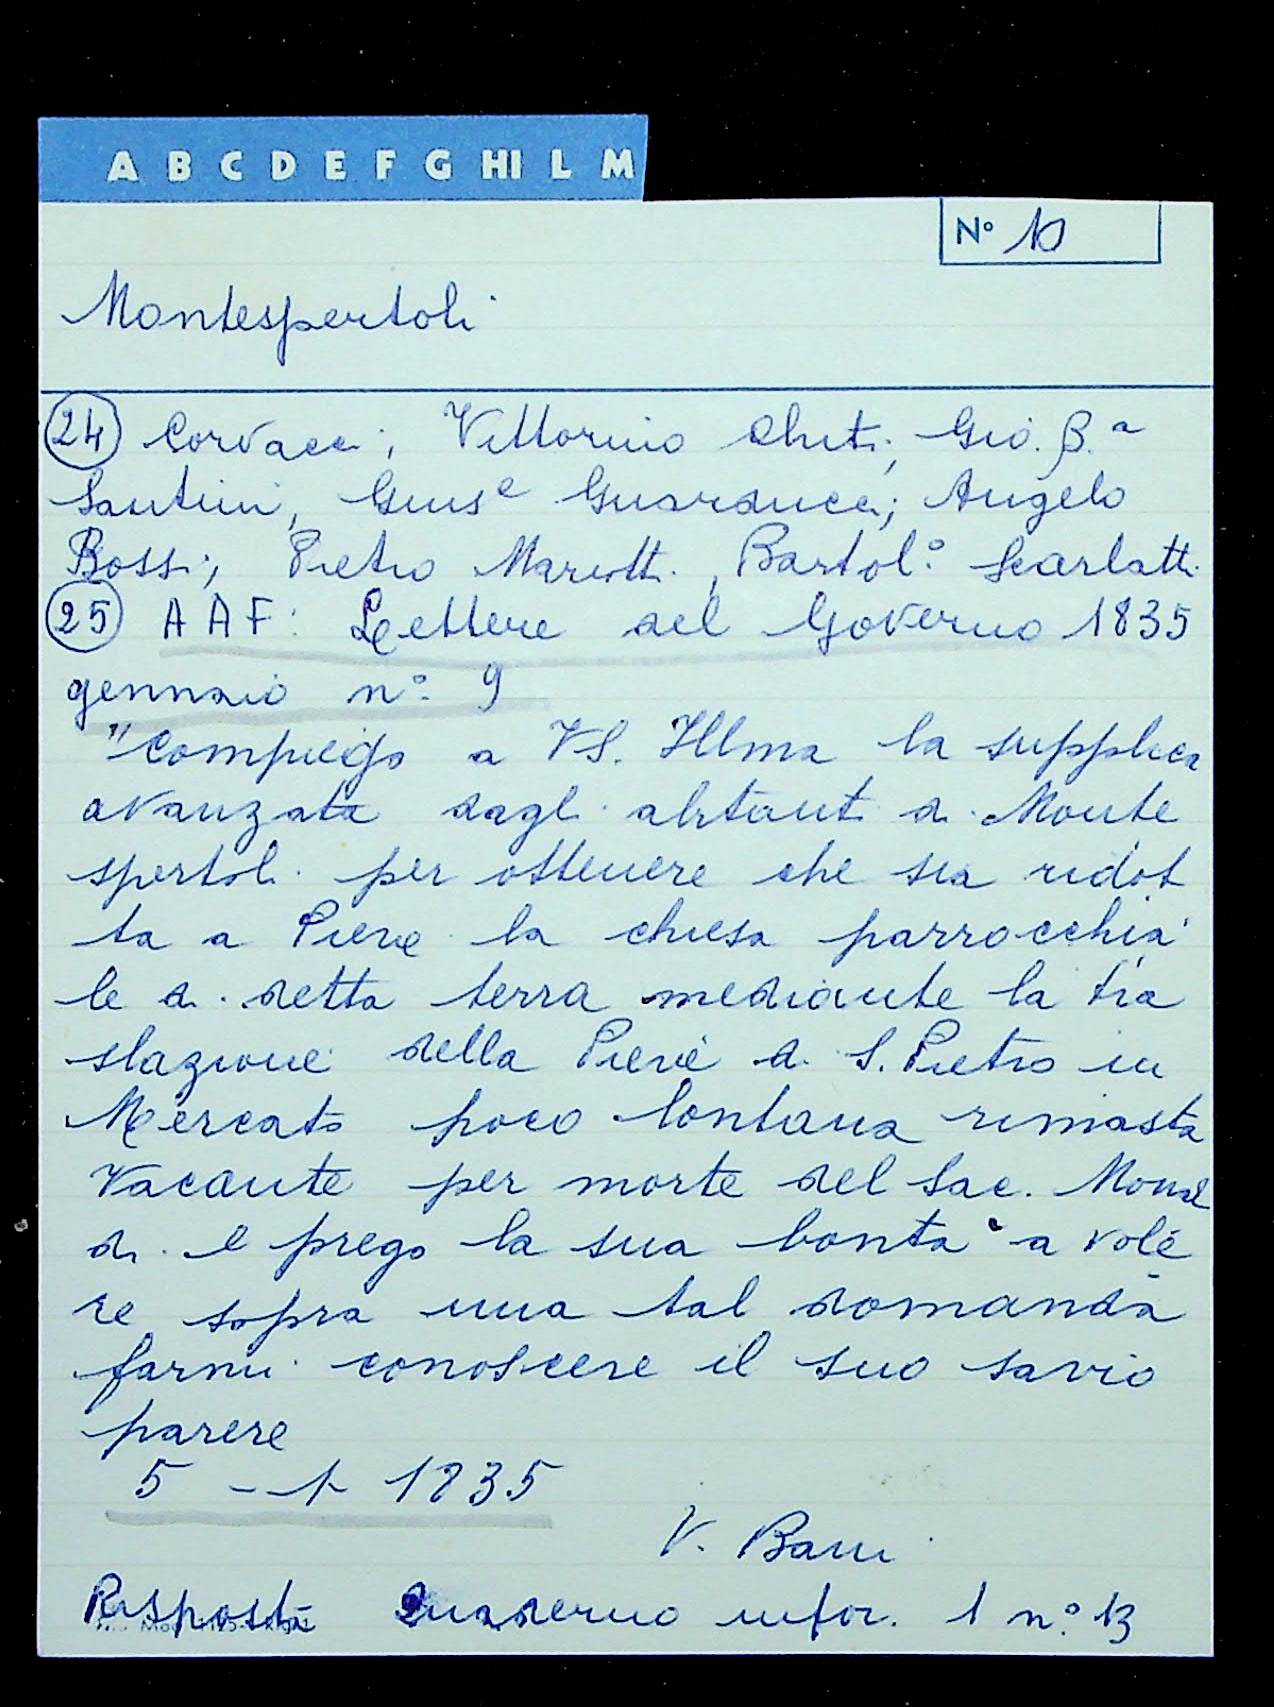 A B C D E F G HI L M
N° 10
Montespertoli
24 Corvacci, Vittorino Chiti, Gio. B.a
Santini, Gius.e Guarducci; Angelo
Bossi, Pietro Mariotti, Bartol.° Scarlatti
25 AAF: Lettere del Governo 1835
gennaio n° 9
"Compiego a VS. Illma la supplica
avanzata dagli abitanti di Monte
spertoli per ottenere che sia ridot
ta a Pieve la chiesa parrocchia
le di detta terra mediante la tra
slazione della Pieve di S. Pietro in
Mercato poco lontana rimasta
Vacante per morte del Sac.
di e prego la sua bontà a vole
re sopra una tal domanda
farmi conoscere il suo savio
parere
5 - 1 - 1835
V. Bani
Risposta Quaderno infor. 1 n° 13